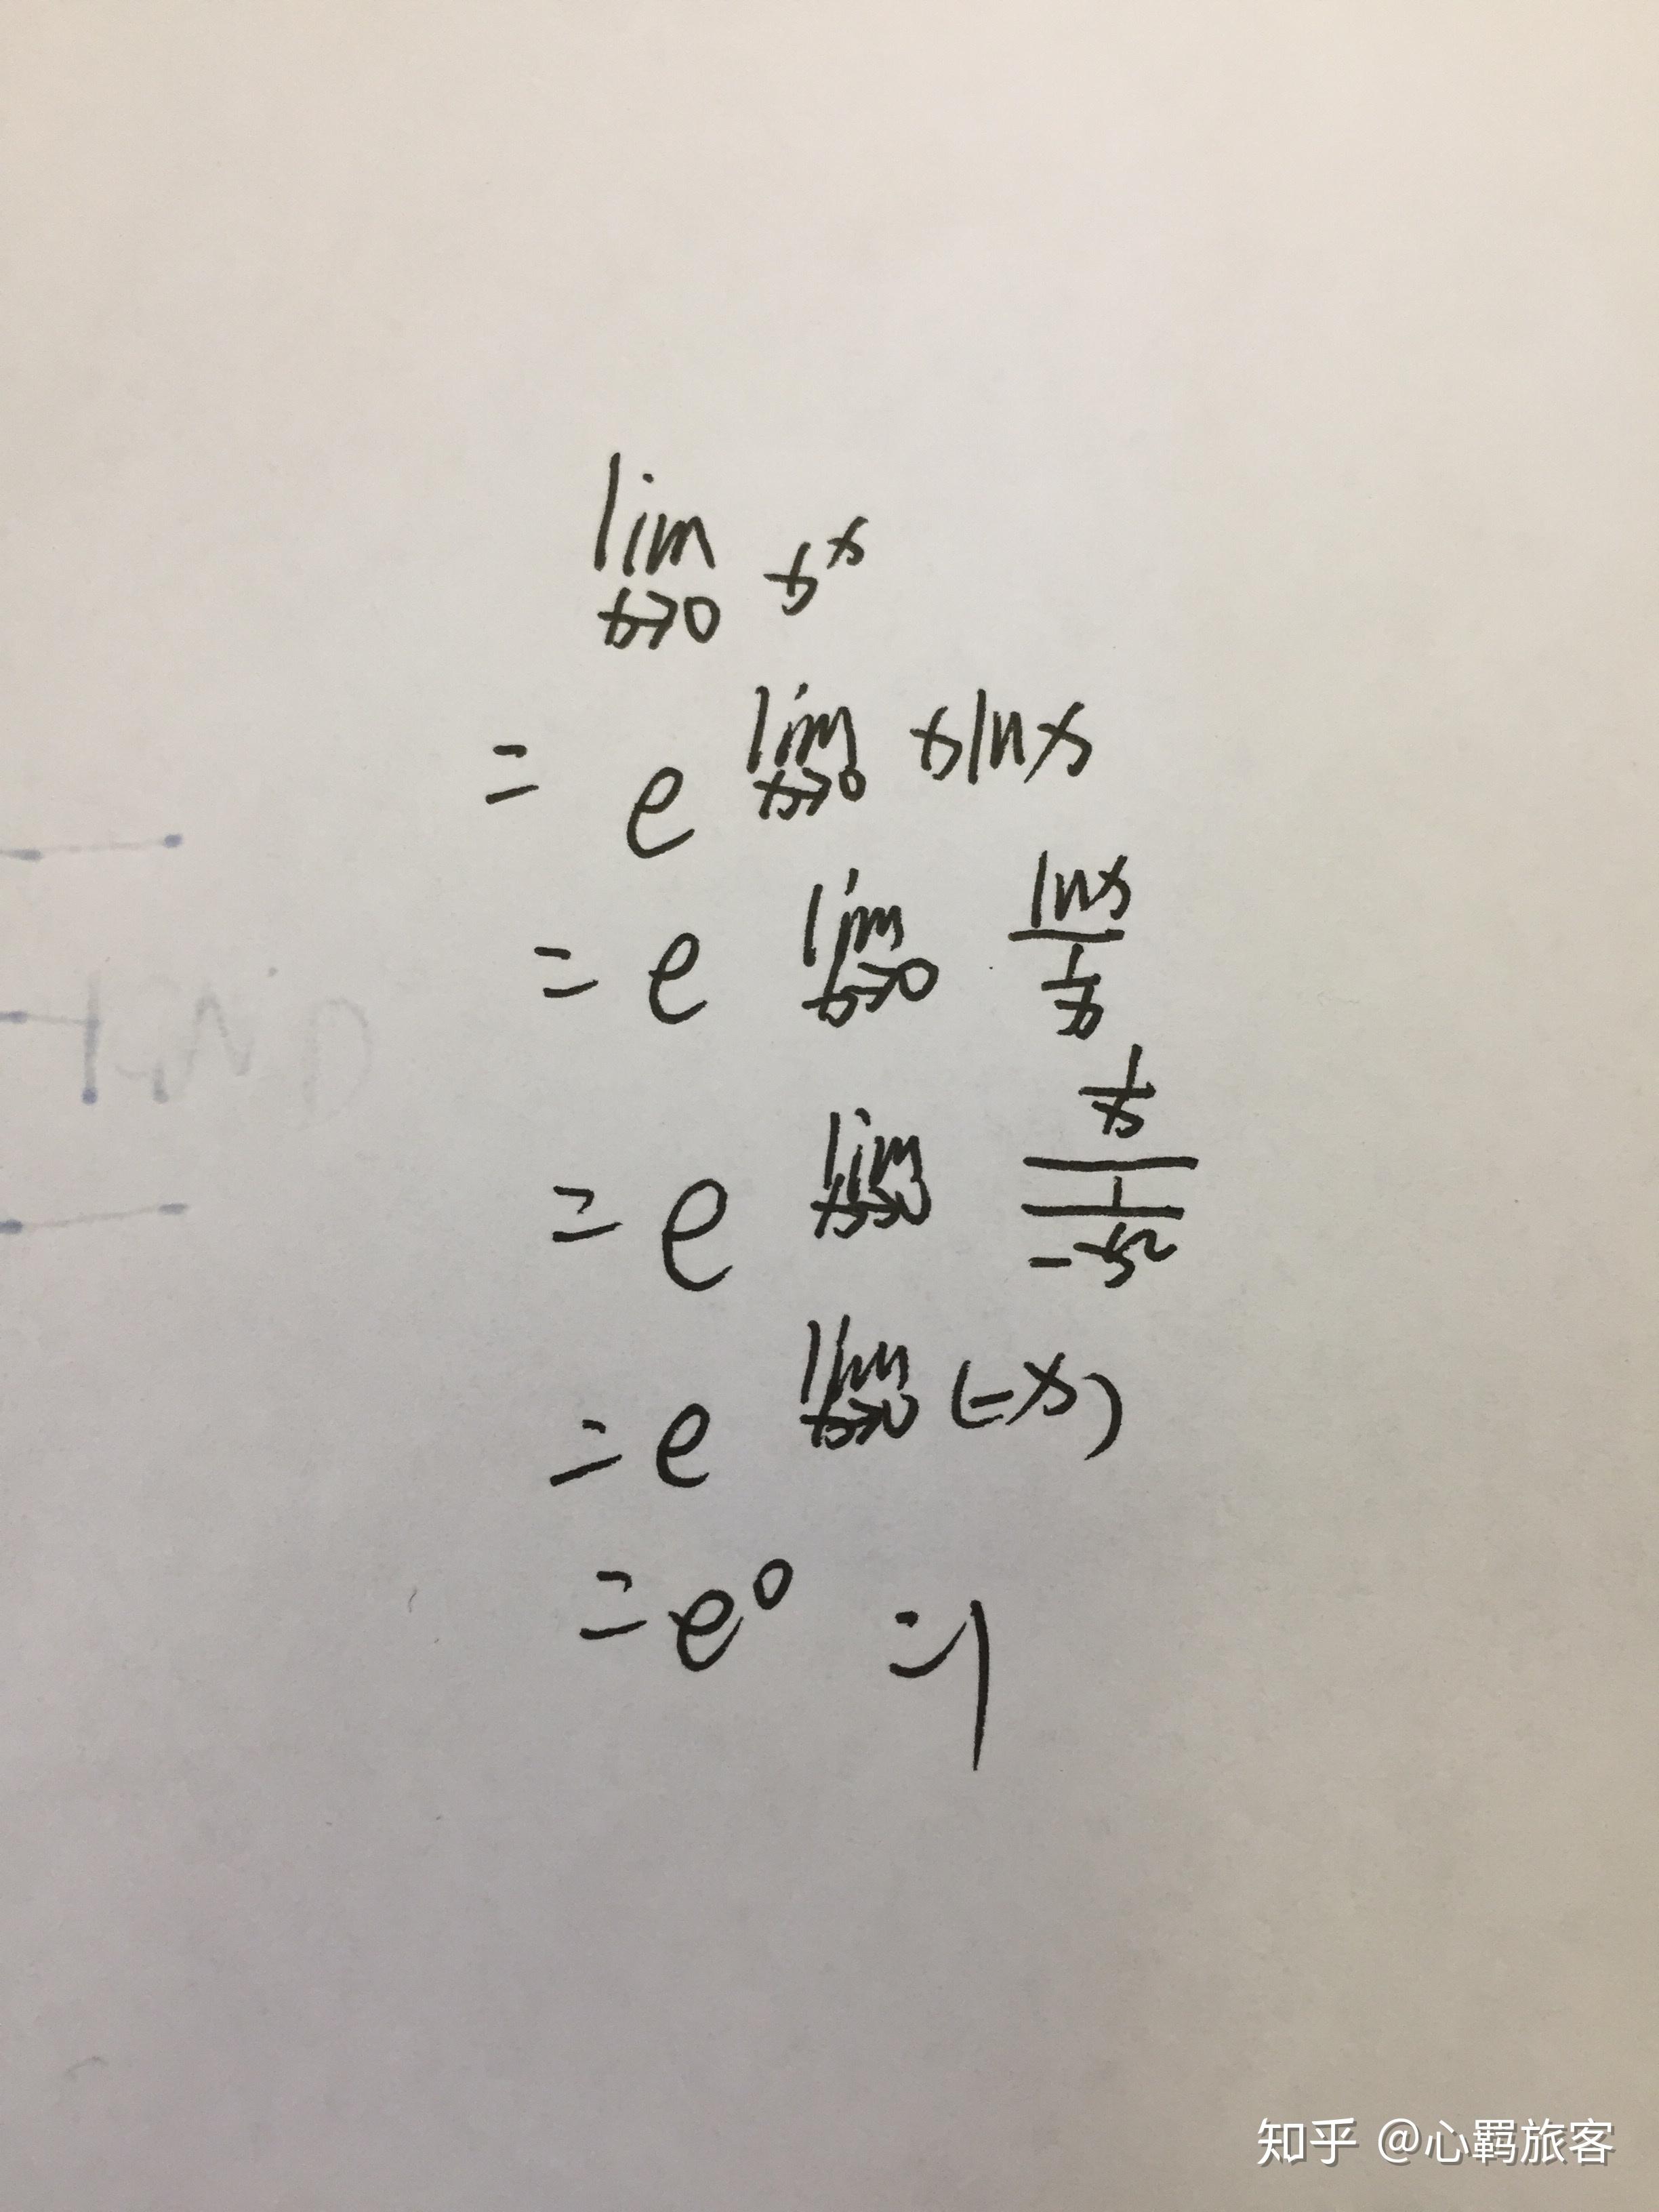 lim x→0 x^x
= e^{lim x→0 x ln x}
= e^{lim x→0 \frac{ln x}{\frac{1}{x}}}
= e^{lim x→0 \frac{\frac{1}{x}}{\frac{1}{-x^2}}}
= e^{lim x→0 (-x)}
= e^0 = 1
知乎 @心羁旅客